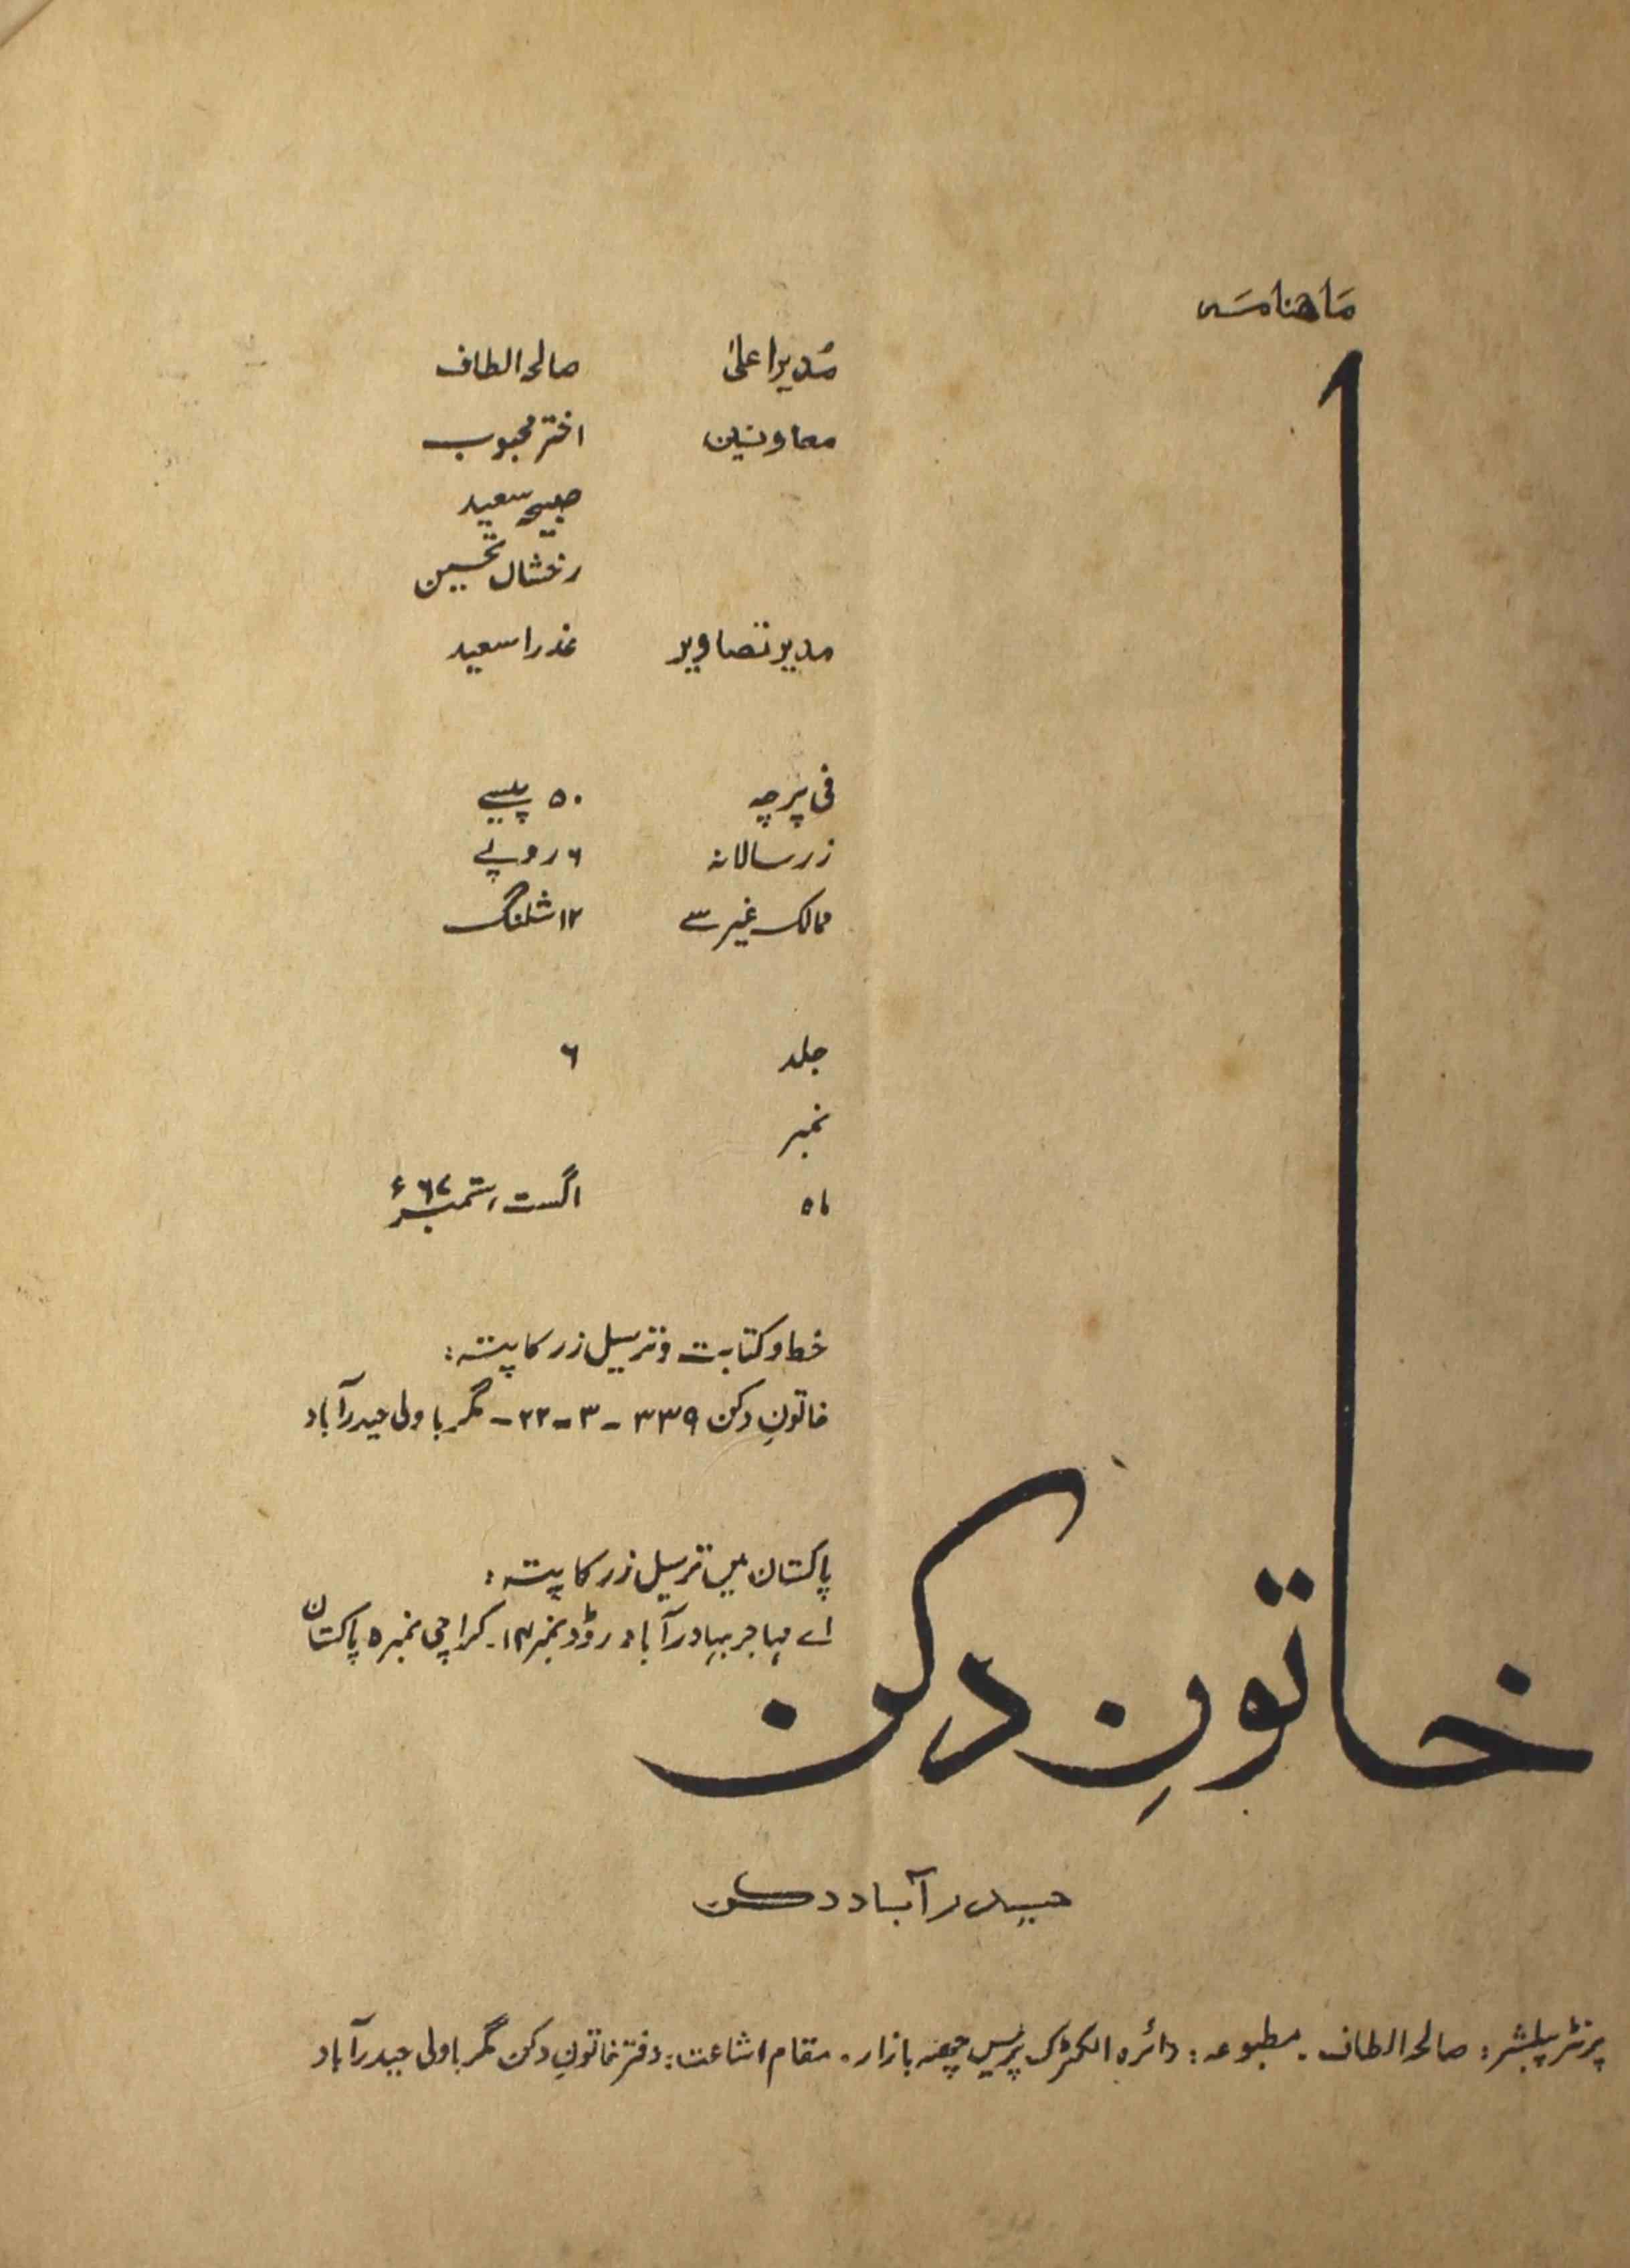 ماهنامہ
خاتونِ دکن
حیدرآباد دکن
مُدیر اعلیٰ صالحہ الطاف
معاونین اختر محبوب
صبیحہ سعید
رخشاں تحسین
مدیر تصاویر عذرا سعید
فی پرچہ ۵۰ پیسے
زر سالانہ ۶ روپے
ممالک غیر سے ۱۲ شلنگ
جلد ۶
نمبر
ماہ اگست، ستمبر ۶۷ء
خط و کتابت و ترسیل زر کا پتہ:
خاتونِ دکن ۳۳۹-۳-۲۲- گمر باولی حیدرآباد
پاکستان میں ترسیل زر کا پتہ:
اے مہاجر بہادر آباد روڈ نمبر ۱۴۔ کراچی نمبر ۵ پاکستان
پرنٹر پبلشر: صالحہ الطاف۔ مطبوعہ: دائرہ الکٹرک پریس چھتہ بازار۔ مقام اشاعت: دفتر خاتونِ دکن گمر باولی حیدرآباد